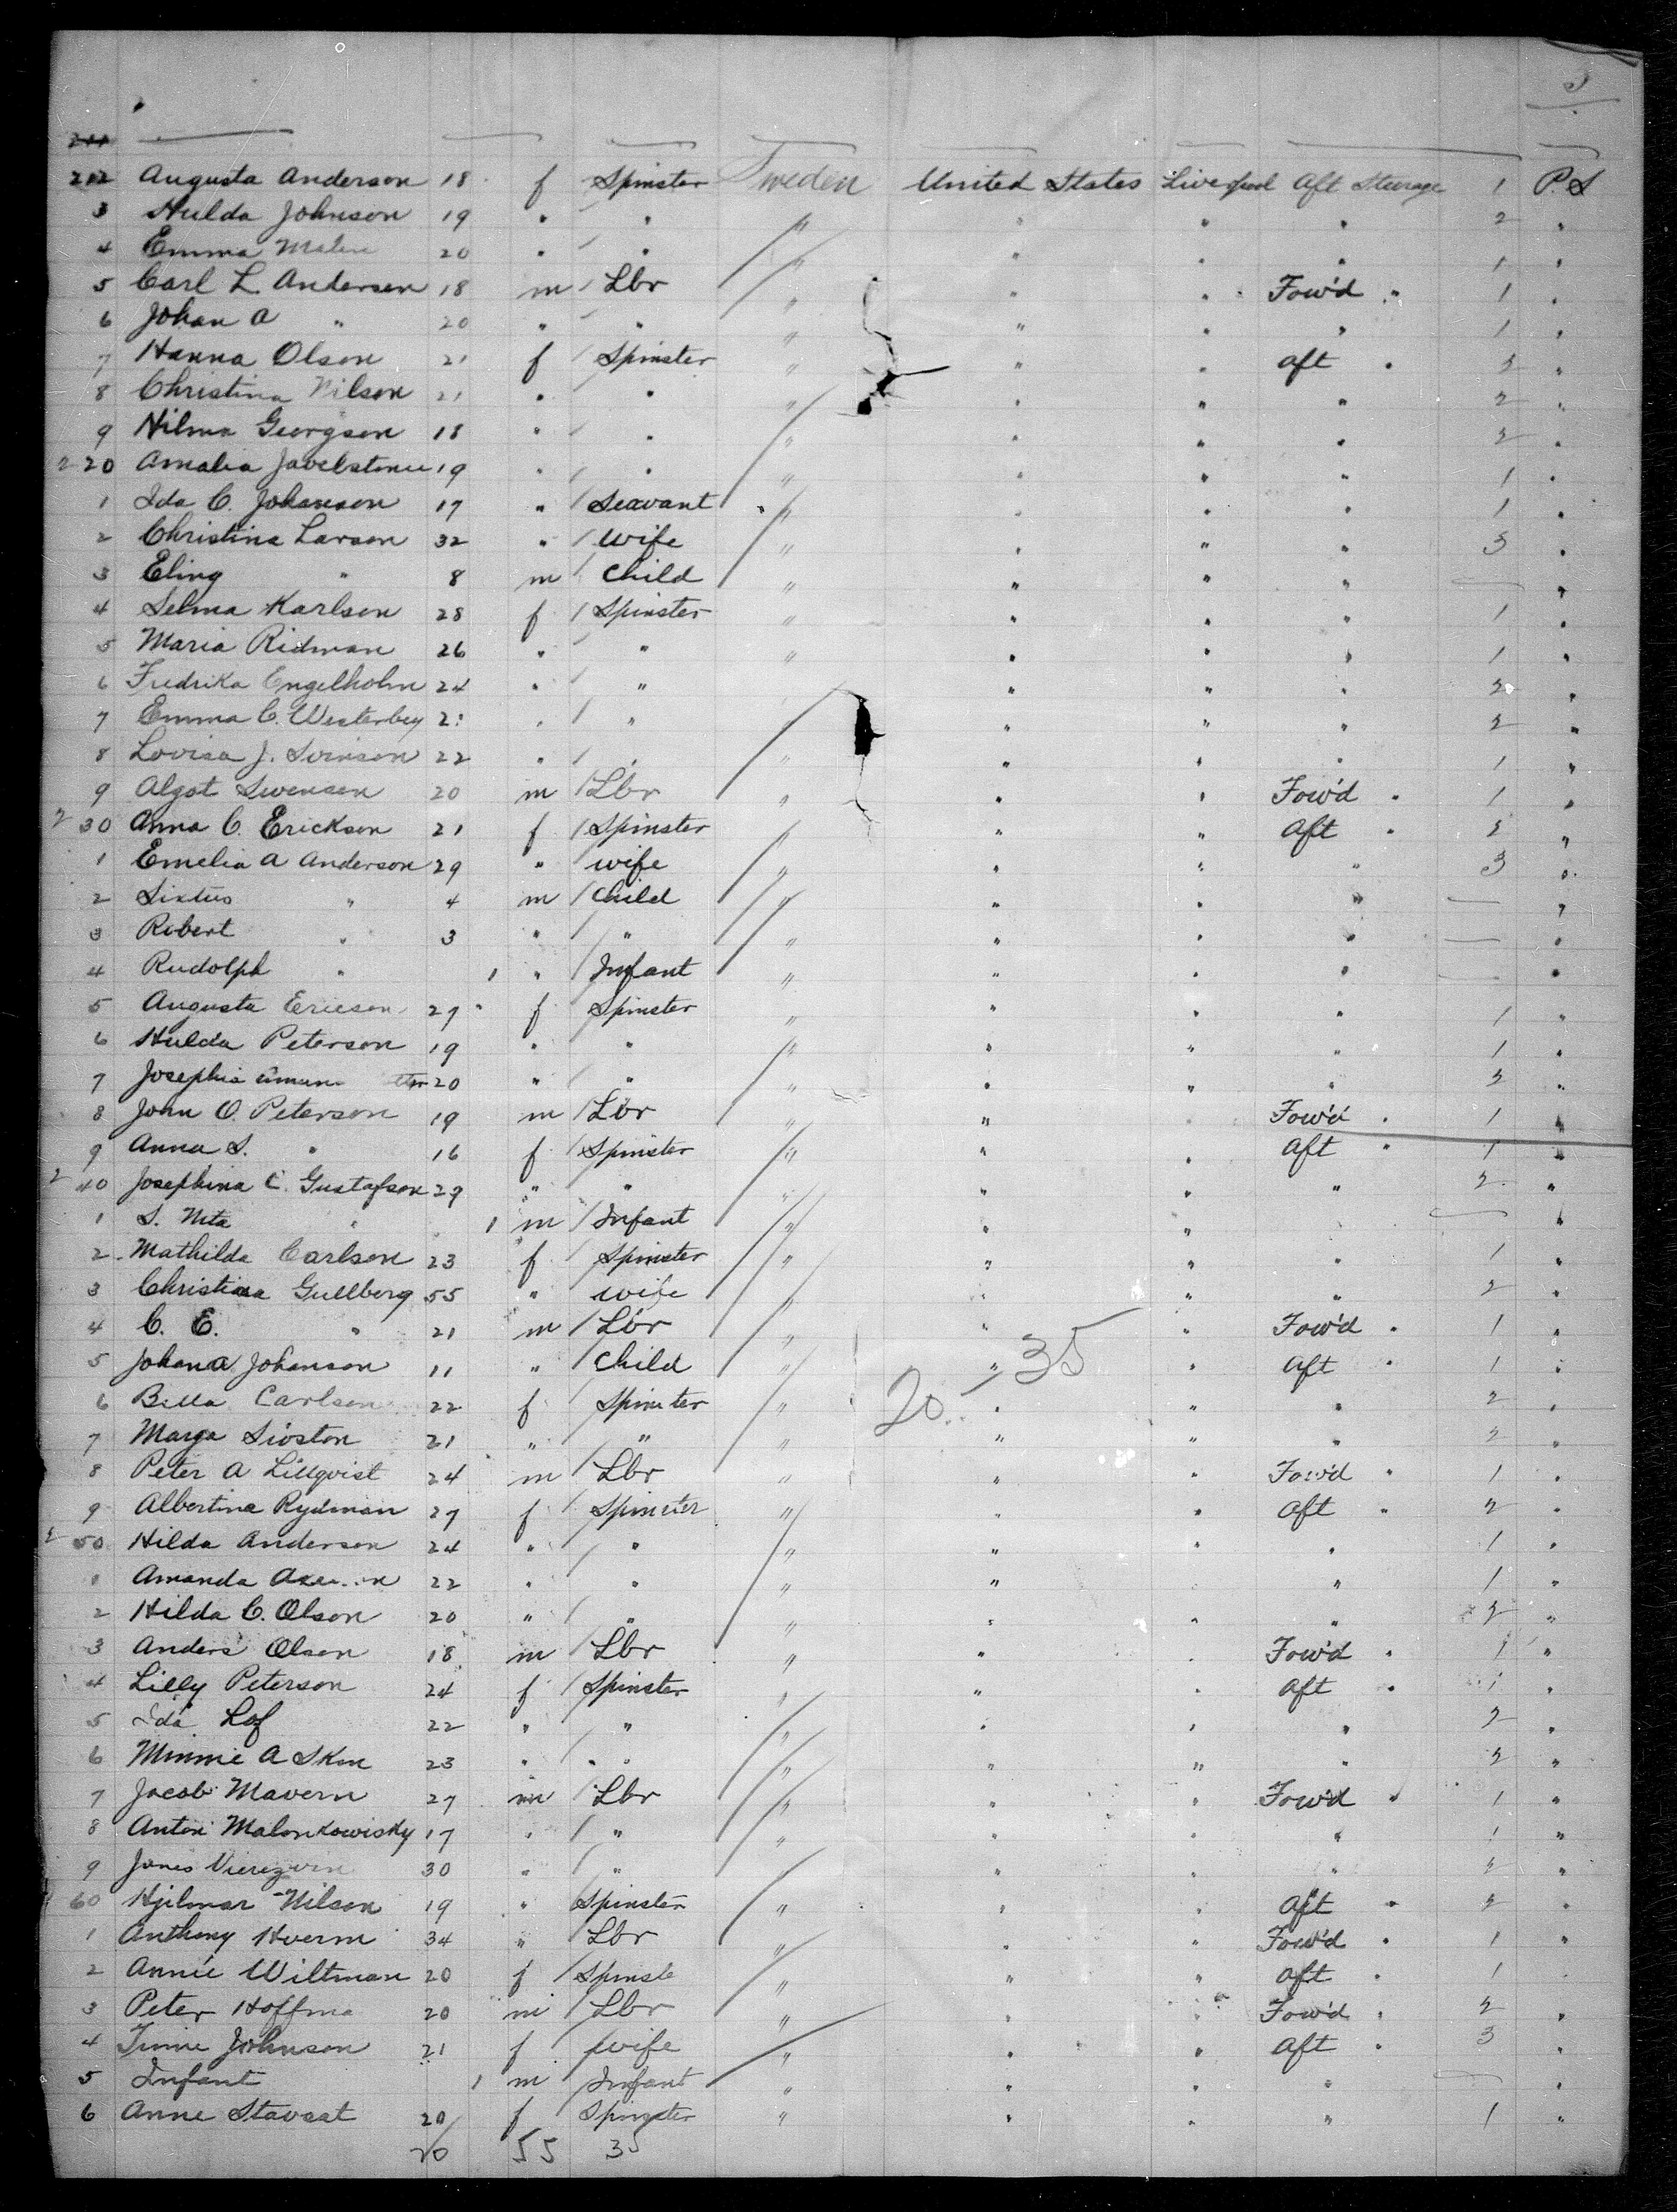 211
212 Augusta Anderson 18 f Spinster Sweden United States Liverpool Aft Steerage 1 P.S
3 Hulda Johnson 19 " " " " " " 2 "
4 Emma 20 " " " " " " 1 "
5 Carl L Anderson 18 m Lbr " " " Fow'd " 1 "
6 Johan A " 20 " " " " " " 1 "
7 Hanna Olson 21 f Spinster " " " aft " 2 "
8 Christina Nilson 21 " " " " " " 2 "
9 Hilma Georgson 18 " " " " " " 2 "
220 Amalia 19 " " " " " " 1 "
1 Ida C. Johanson 17 " Searvant " " " " 1 "
2 Christina Larson 32 " wife " " " " 3 "
3 Eling " 8 m Child " " " " — "
4 Selma Karlson 28 f Spinster " " " " 1 "
5 Maria Ridman 26 " " " " " " 1 "
6 Fredrika Engelholm 24 " " " " " " 2 "
7 Emma C. Westerbey " " " " " " 2 "
8 Lovisa J. 22 " " " " " " 1 "
9 Algot Swensen 20 m Lbr " " " Fow'd " 1 "
230 Anna C. Erickson 21 f Spinster " " " Aft " 2 "
1 Emelia A Anderson 29 " wife " " " " 3 "
2 Sixtus " 4 m Child " " " " — "
3 Robert " 3 " " " " " " — "
4 Rudolph " 1 " Infant " " " " — "
5 Augusta Ericson 27 f Spinster " " " " 1 "
6 Hulda Peterson 19 " " " " " " 1 "
7 20 " " " " " " 2 "
8 John O. Peterson 19 m Lbr " " " Fow'd " 1 "
9 Anna S. " 16 f Spinster " " " Aft " 1 "
240 Josephina C. Gustafson 29 " " " " " " 2 "
1 S. " 1 m Infant " " " — "
2 Mathilda Carlson 23 f Spinster " " " " 1 "
3 Christina Gullberg 55 " wife " " " " 2 "
4 C. E. " 21 m Lbr " " " Fow'd " 1 "
5 Johan A Johanson 11 " Child " " " Aft " 1 "
20 - 35
6 Carlson 22 f Spinster " " " " 2 "
7 Marga 21 " " " " " " 2 "
8 Peter A Lillqvist 24 m Lbr " " " Fow'd " 1 "
9 Albertina Rydman 27 f Spinster " " " Aft " 2 "
250 Hilda Anderson 24 " " " " " " 1 "
1 Amanda 22 " " " " " 1 "
2 Hilda C. Olson 20 " " " " " " 2 "
3 Anders Olson 18 m Lbr " " " Fow'd " 1 "
4 Lilly Peterson 24 f Spinster " " " Aft " 1 "
5 Ida Lof 22 " " " " " " 2 "
6 Minnie A Skon 23 " " " " " " 2 "
7 Jacob Mavern 27 m Lbr " " " Fow'd " 1 "
8 Anton Malonkowisky 17 " " " " " " 1 "
9 30 " " " " " " 2 "
60 Hjilmar Nilson 19 " Spinster " " " Aft " 2 "
1 Anthony 34 " Lbr " " " Fow'd " 1 "
2 Annie Wiltman 20 f Spinste " " " Aft " 1
3 Peter Hoffma 20 m Lbr " " " Fow'd " 2 "
4 Johnson 21 f wife " " " Aft " 3 "
5 Infant 1 m Infant " " " " — "
6 Anne 20 f Spinster " " " " 1 "
20 55 35